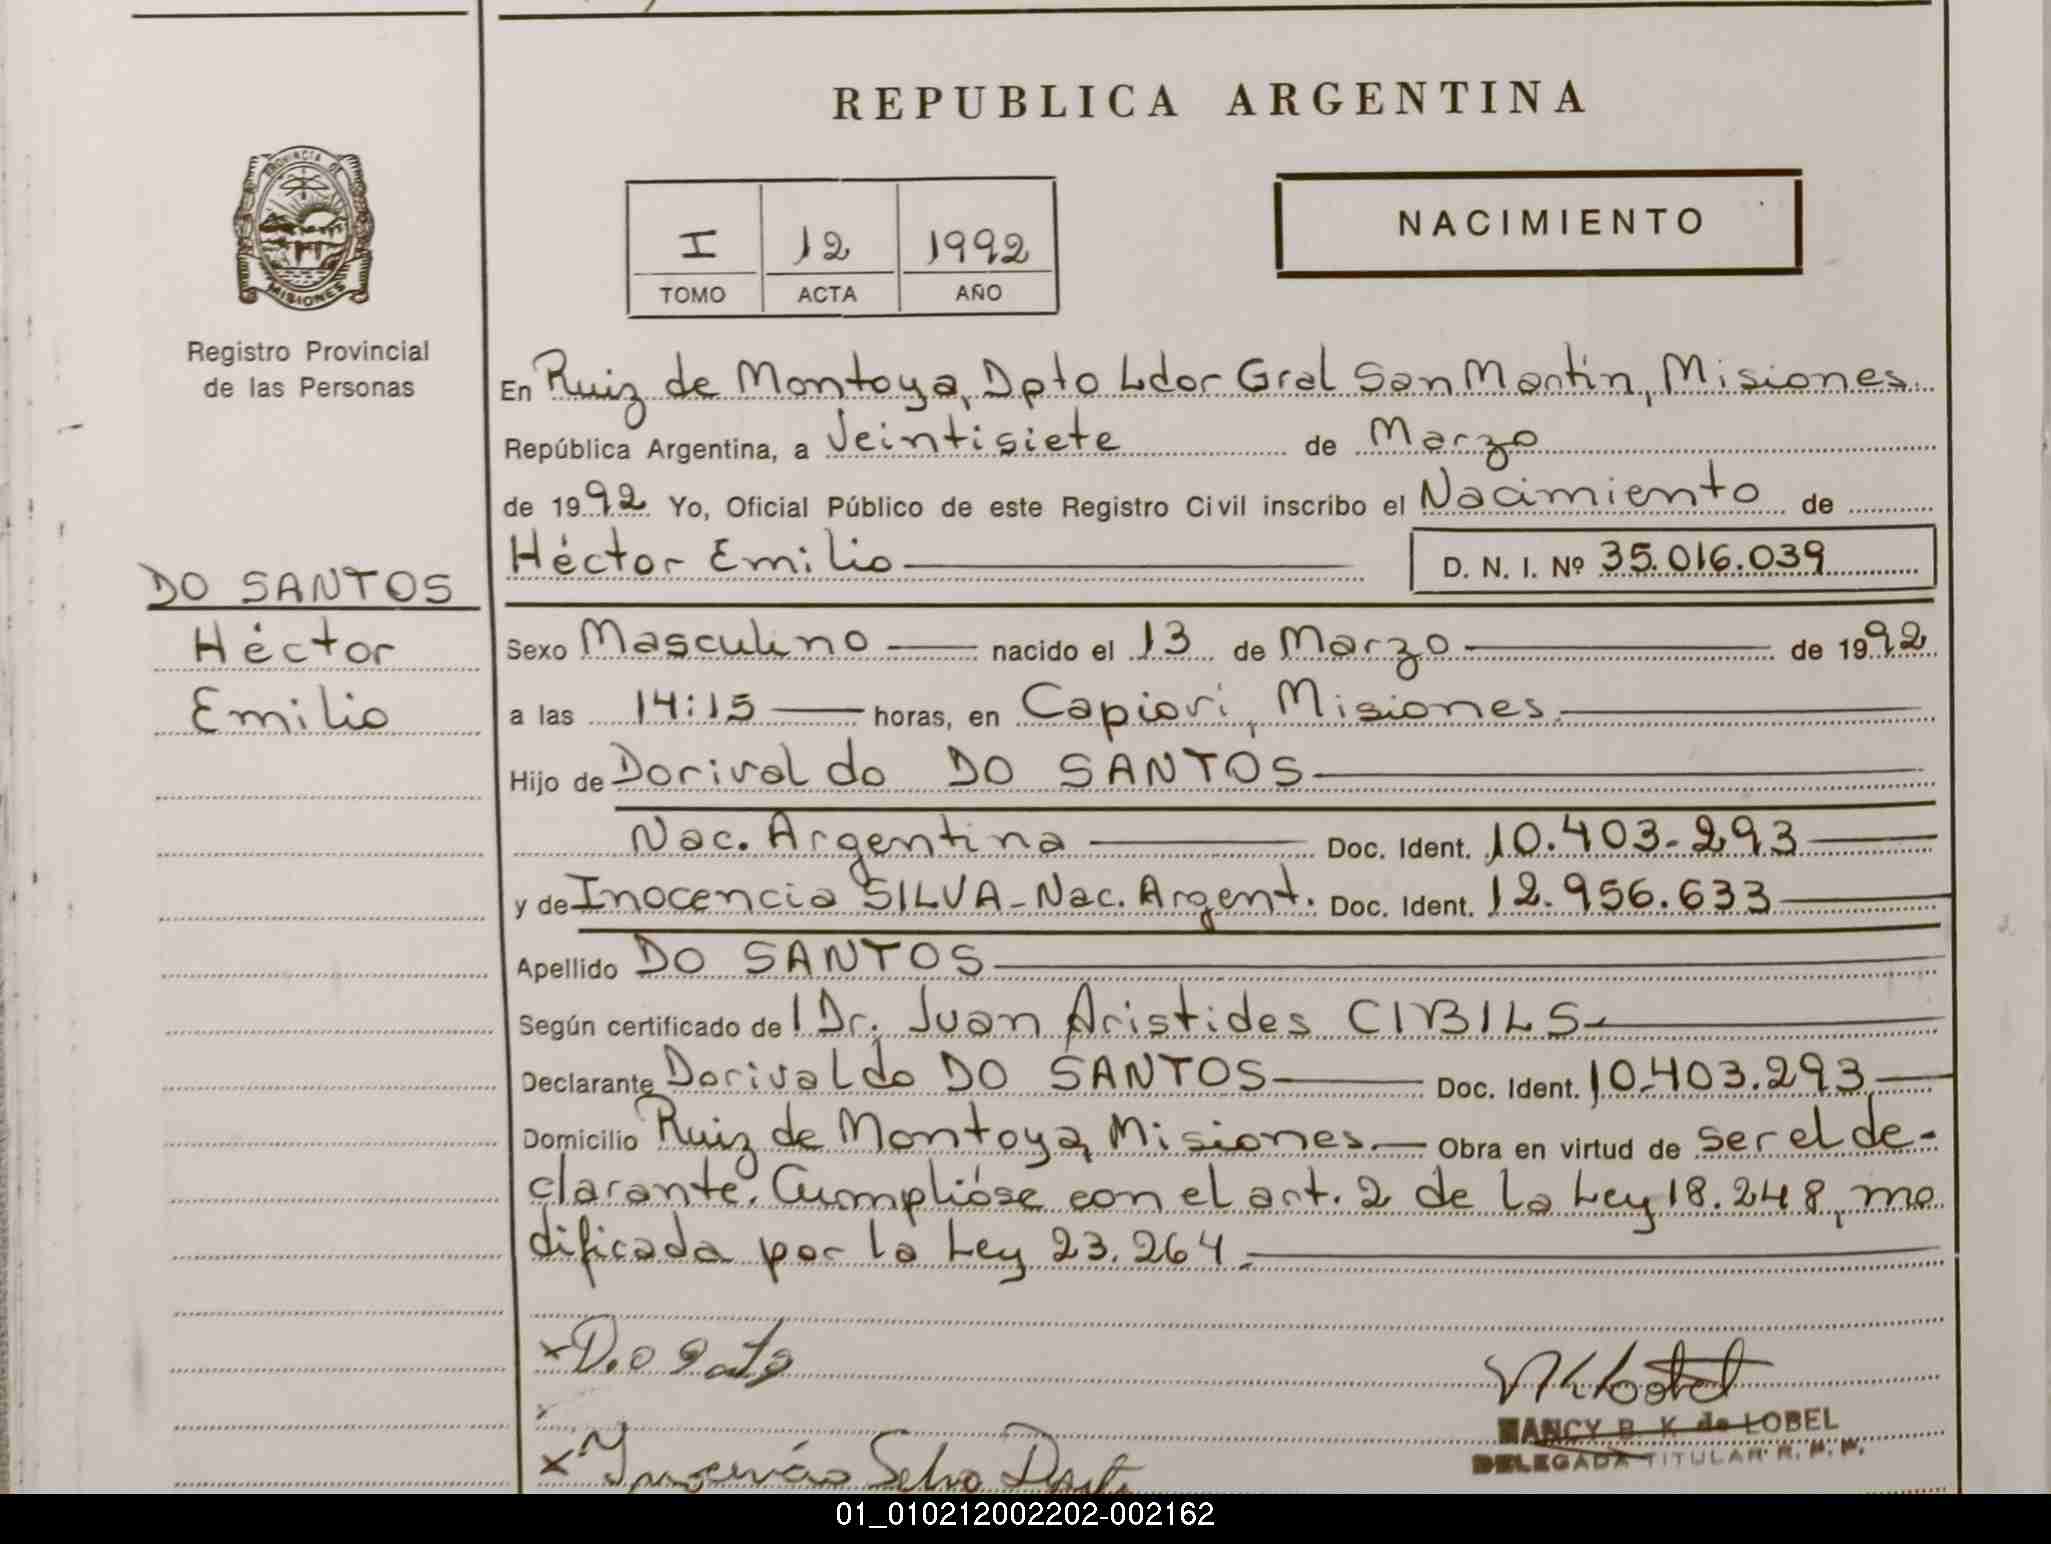 REPUBLICA ARGENTINA
PROVINCIA DE MISIONES
Registro Provincial
de las Personas
I 12 1992
TOMO ACTA AÑO
NACIMIENTO
En Ruiz de Montoya, Dpto Ldor Gral San Martín, Misiones.
República Argentina, a Veintisiete de Marzo
de 1992 Yo, Oficial Público de este Registro Civil inscribo el Nacimiento de
Héctor Emilio D. N. I. Nº 35.016.039
DO SANTOS
Héctor
Emilio
Sexo Masculino nacido el 13 de Marzo de 1992
a las 14:15 horas, en Capiovi, Misiones.
Hijo de Dorivaldo DO SANTOS
Nac. Argentina Doc. Ident. 10.403-293
y de Inocencia SILVA-Nac. Argent. Doc. Ident. 12.956.633
Apellido DO SANTOS
Según certificado del Dr. Juan Aristides CIBILS
Declarante Dorivaldo DO SANTOS Doc. Ident. 10.403.293
Domicilio Ruiz de Montoya, Misiones. Obra en virtud de ser el de-
clarante. Cumplióse con el art. 2 de la Ley 18.248, mo
dificada por la Ley 23.264.
NANCY B. K. de LOBEL
DELEGADA TITULAR R. P. P.
01_010212002202-002162